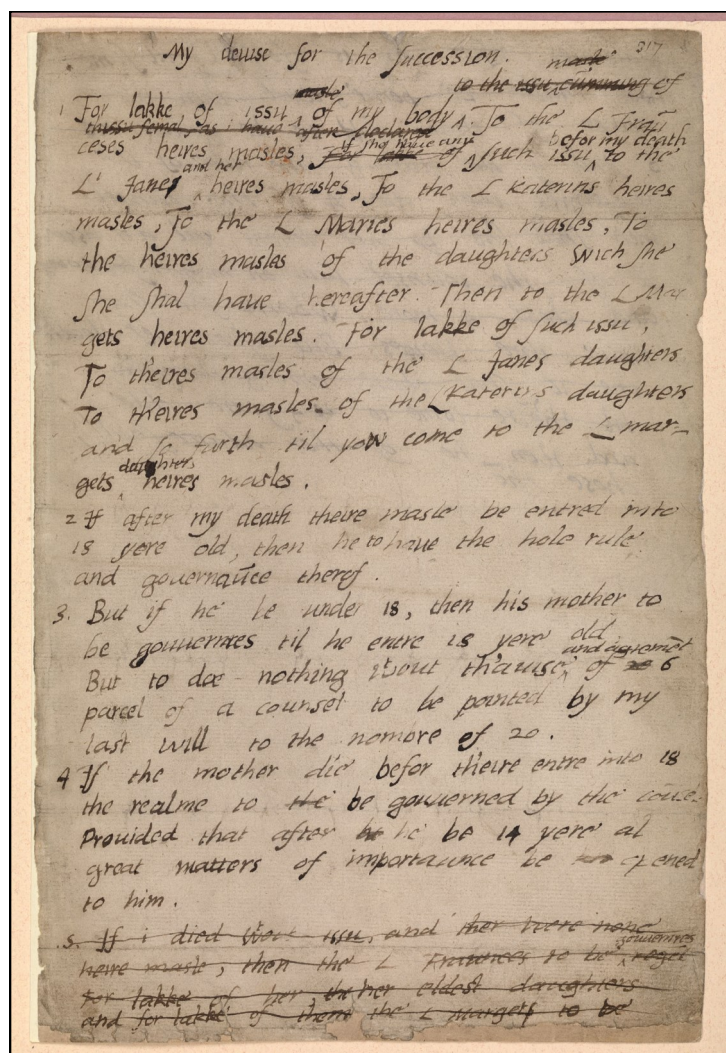 317
My deuise for the succession.
masle
to the issu cumming of
masle
1 For lakke of issu ‸ of my body ‸. To the L Frau
thissu femal, as i haue after declared
if she have any
befor my death
ceses heires masles, For lakke of ‸ such issu ‸ to the
and her
L' Janes ‸ heires masles, To the L Katerins heires
masles, To the L Maries heires masles, To
the heires masles of the daughters wich she
she shal haue hereafter. Then to the L Mar
gets heires masles. For lakke of such issu,
To theires masles of the L Janes daughters
To theires masles of the L Katerins daughters
and so furth til yow come to the L mar-
daughters
gets ‸ heires masles.
2 If after my death theire masle be entred into
18 yere old, then he to haue the hole rule
and gouernaūce therof.
3. But if he be under 18, then his mother to
be gouuernres til he entre 18 yere old
and agremēt
But to doe nothing wtout thauise ‸ of 6
parcel of a counsel to be pointed by my
last will to the nombre of 20.
4 If the mother die befor theire entre into 18
the realme to the be gouuerned by the coūc-
Prouided that after he he be 14 yere al
great matters of importaunce be opened
to him.
5. If i died wtout issu, and ther were none
gouuernres
heire masle, then the L Fraunces to be ‸ reget
For lakke of her, the her eldest daughters
and for lakke of them the L Margets to be